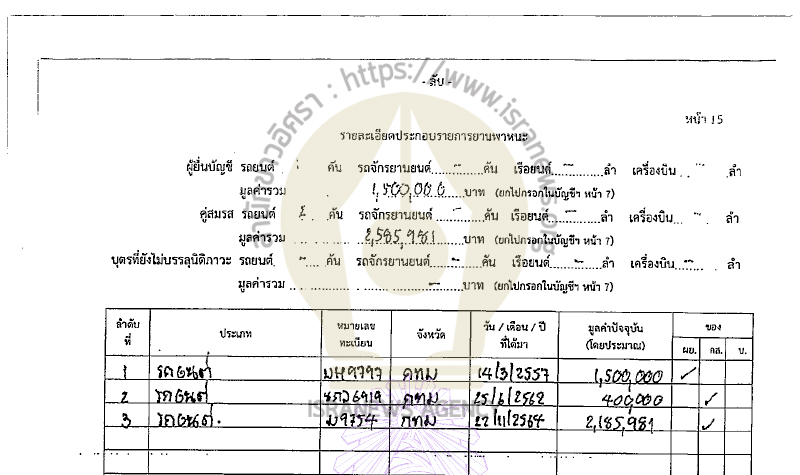 - ลับ -
หน้า 15
รายละเอียดประกอบรายการยานพาหนะ
ผู้ยื่นบัญชี รถยนต์ 1 คัน รถจักรยานยนต์ - คัน เรือยนต์ - ลำ เครื่องบิน - ลำ
มูลค่ารวม 1,500,000 บาท (ยกไปกรอกในบัญชีฯ หน้า 7)
คู่สมรส รถยนต์ 2 คัน รถจักรยานยนต์ - คัน เรือยนต์ - ลำ เครื่องบิน - ลำ
มูลค่ารวม 2,585,981 บาท (ยกไปกรอกในบัญชีฯ หน้า 7)
บุตรที่ยังไม่บรรลุนิติภาวะ รถยนต์ - คัน รถจักรยานยนต์ - คัน เรือยนต์ - ลำ เครื่องบิน - ลำ
มูลค่ารวม - บาท (ยกไปกรอกในบัญชีฯ หน้า 7)
ลำดับที่ ประเภท หมายเลขทะเบียน จังหวัด วัน / เดือน / ปี ที่ได้มา มูลค่าปัจจุบัน (โดยประมาณ) ของ
ผย. คส. บ.
1 รถยนต์ กทม 14/3/2557 1,500,000 ✓
2 รถยนต์ กทม 25/6/2562 400,000 ✓
3 รถยนต์ กทม 22/11/2564 2,185,981 ✓
สำนักข่าวอิศรา : https://www.isranews.org
ISRANEWS AGENCY